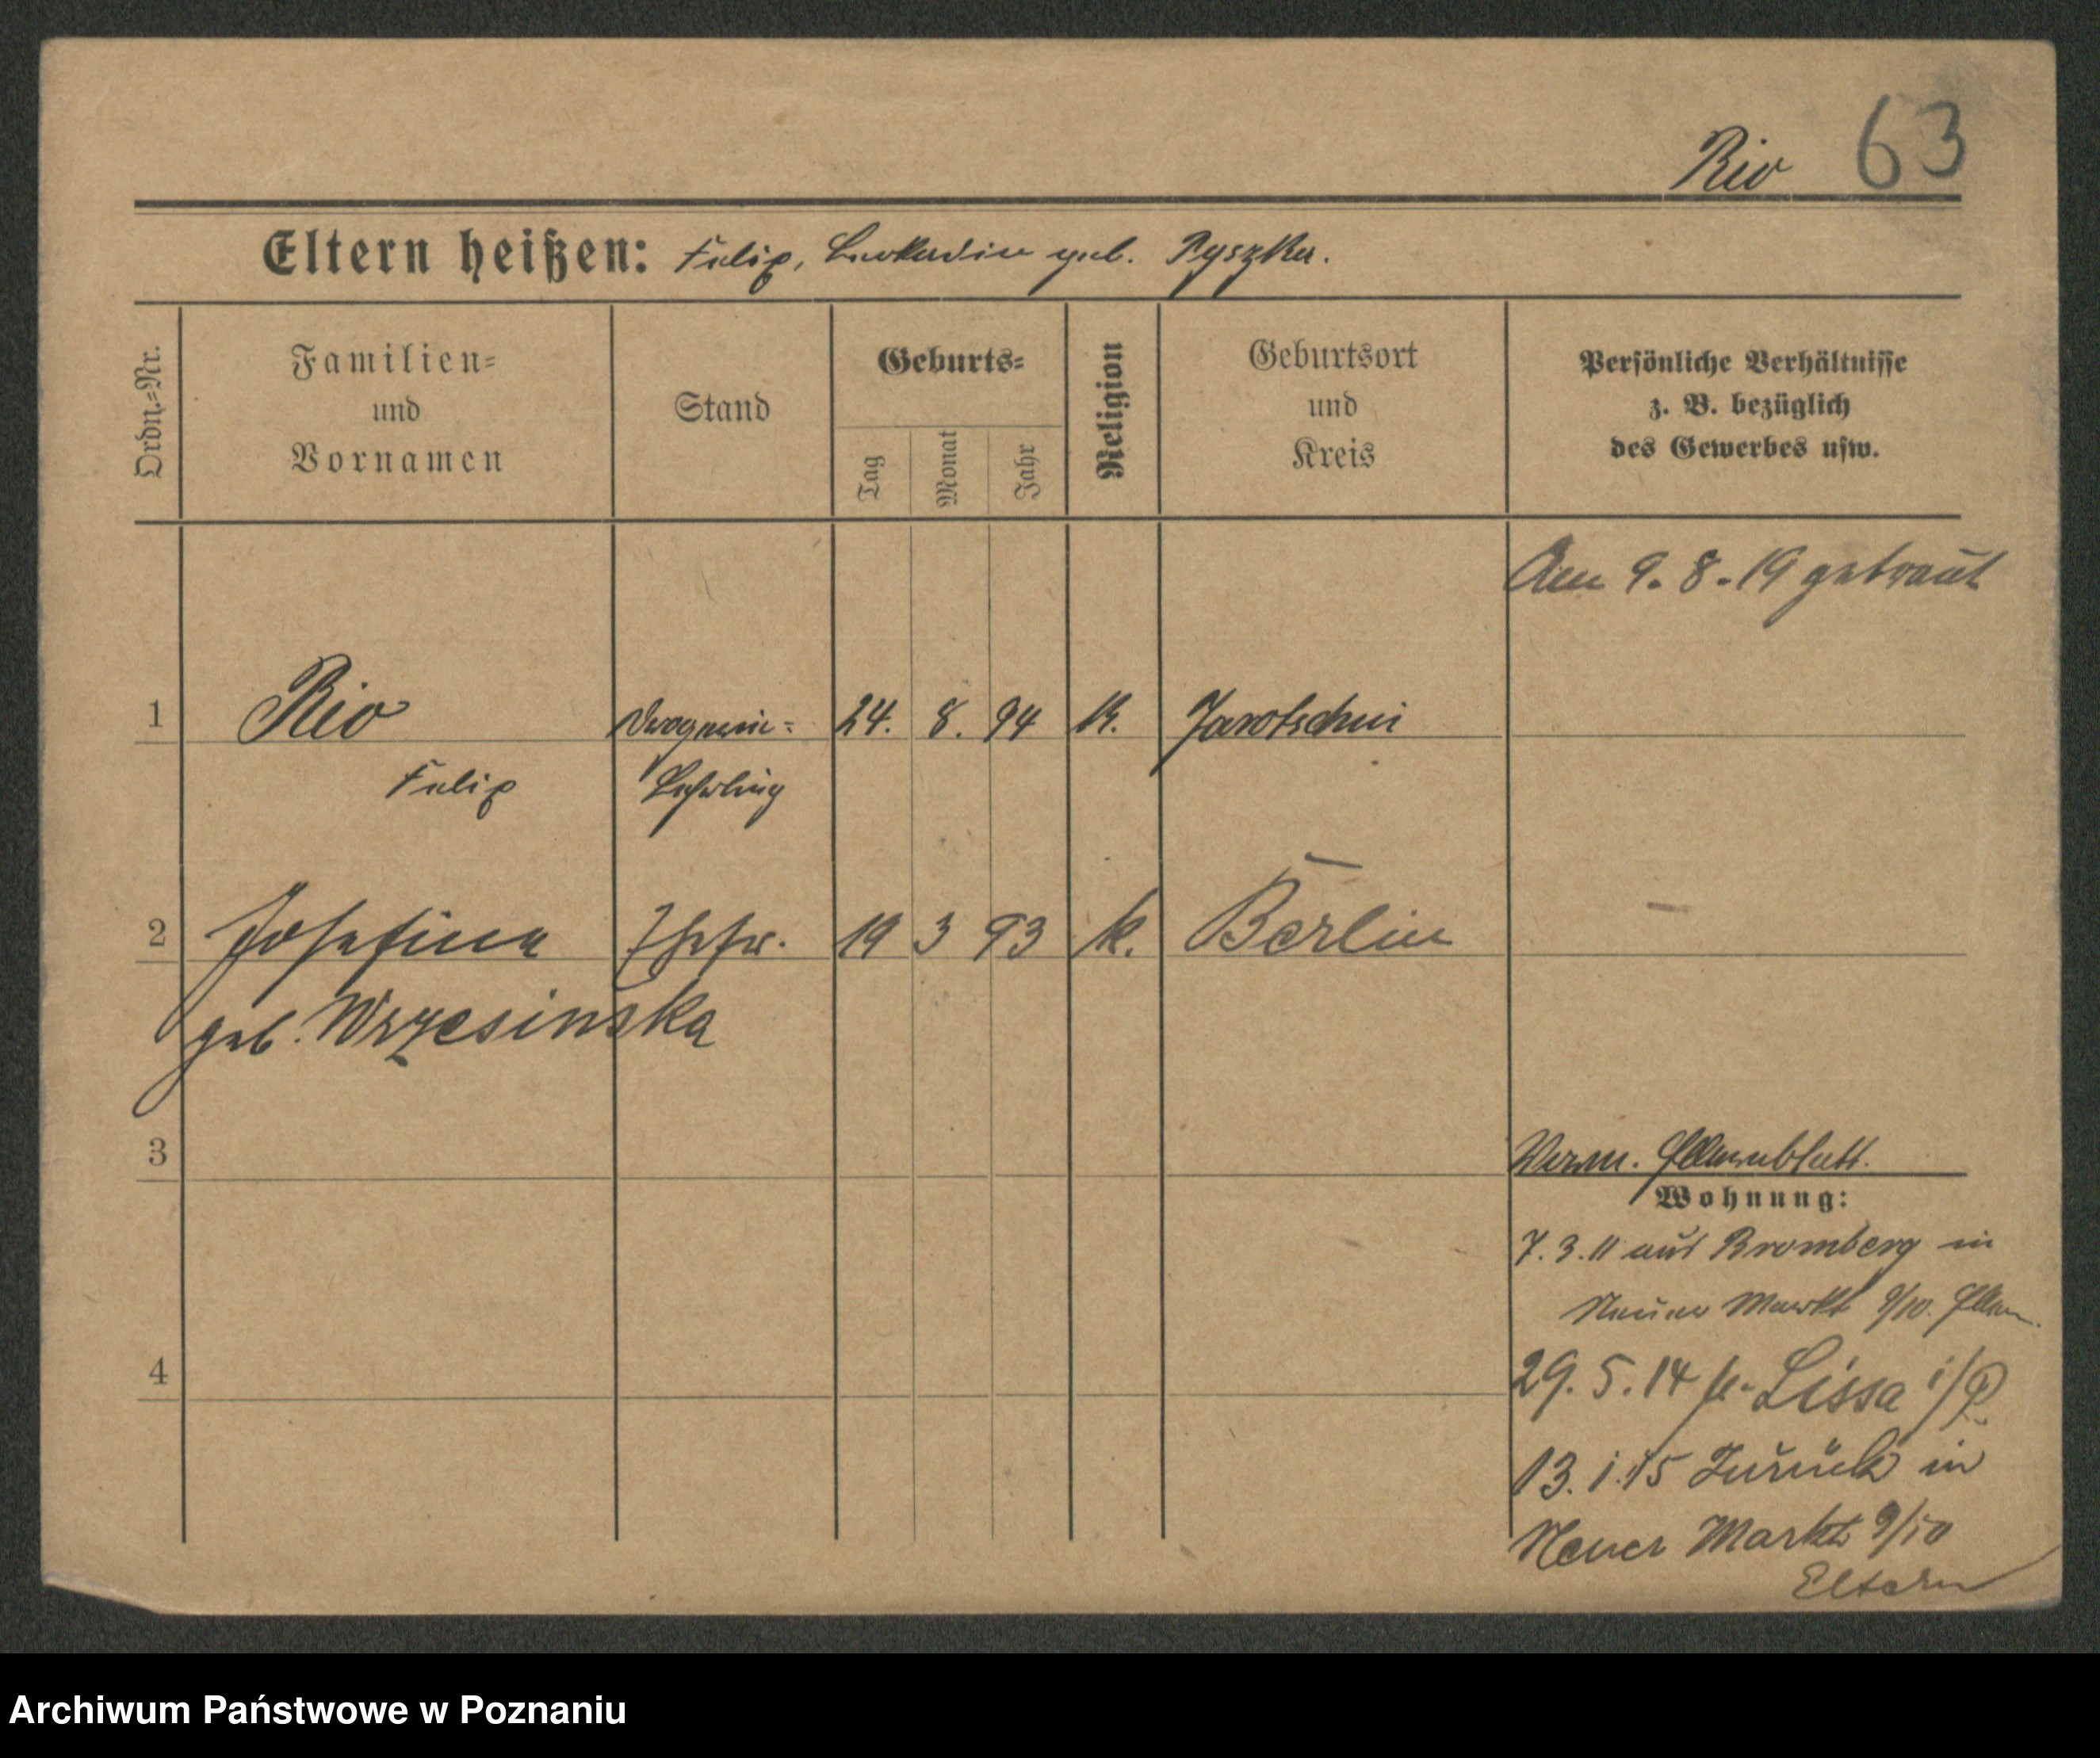 Rio 63
Eltern heißen: Felix, Leokadia geb. Pyszka.
Ordn.=Nr.
Familien=
und
Vornamen
Stand
Geburts=
Tag
Monat
Jahr
Religion
Geburtsort
und
Kreis
Persönliche Verhältnisse
z. B. bezüglich
des Gewerbes usw.
Am 9. 8. 19 getraut
1 Rio Drogerie= 24. 8. 94 K. Jarotschin
Felix Lehrling
2 Josefina Ehefr. 19 3 93 k. Berlin
geb. Wrzesinska
3 Verm. Elternblatt.
Wohnung:
7. 3. 11 aus Bromberg in
Neuer Markt 9/10. Eltern.
4 29. 5. 14 Lissa i/P.
13. 1. 15 Zurück in
Neuer Markt 9/10
Eltern
Archiwum Państwowe w Poznaniu